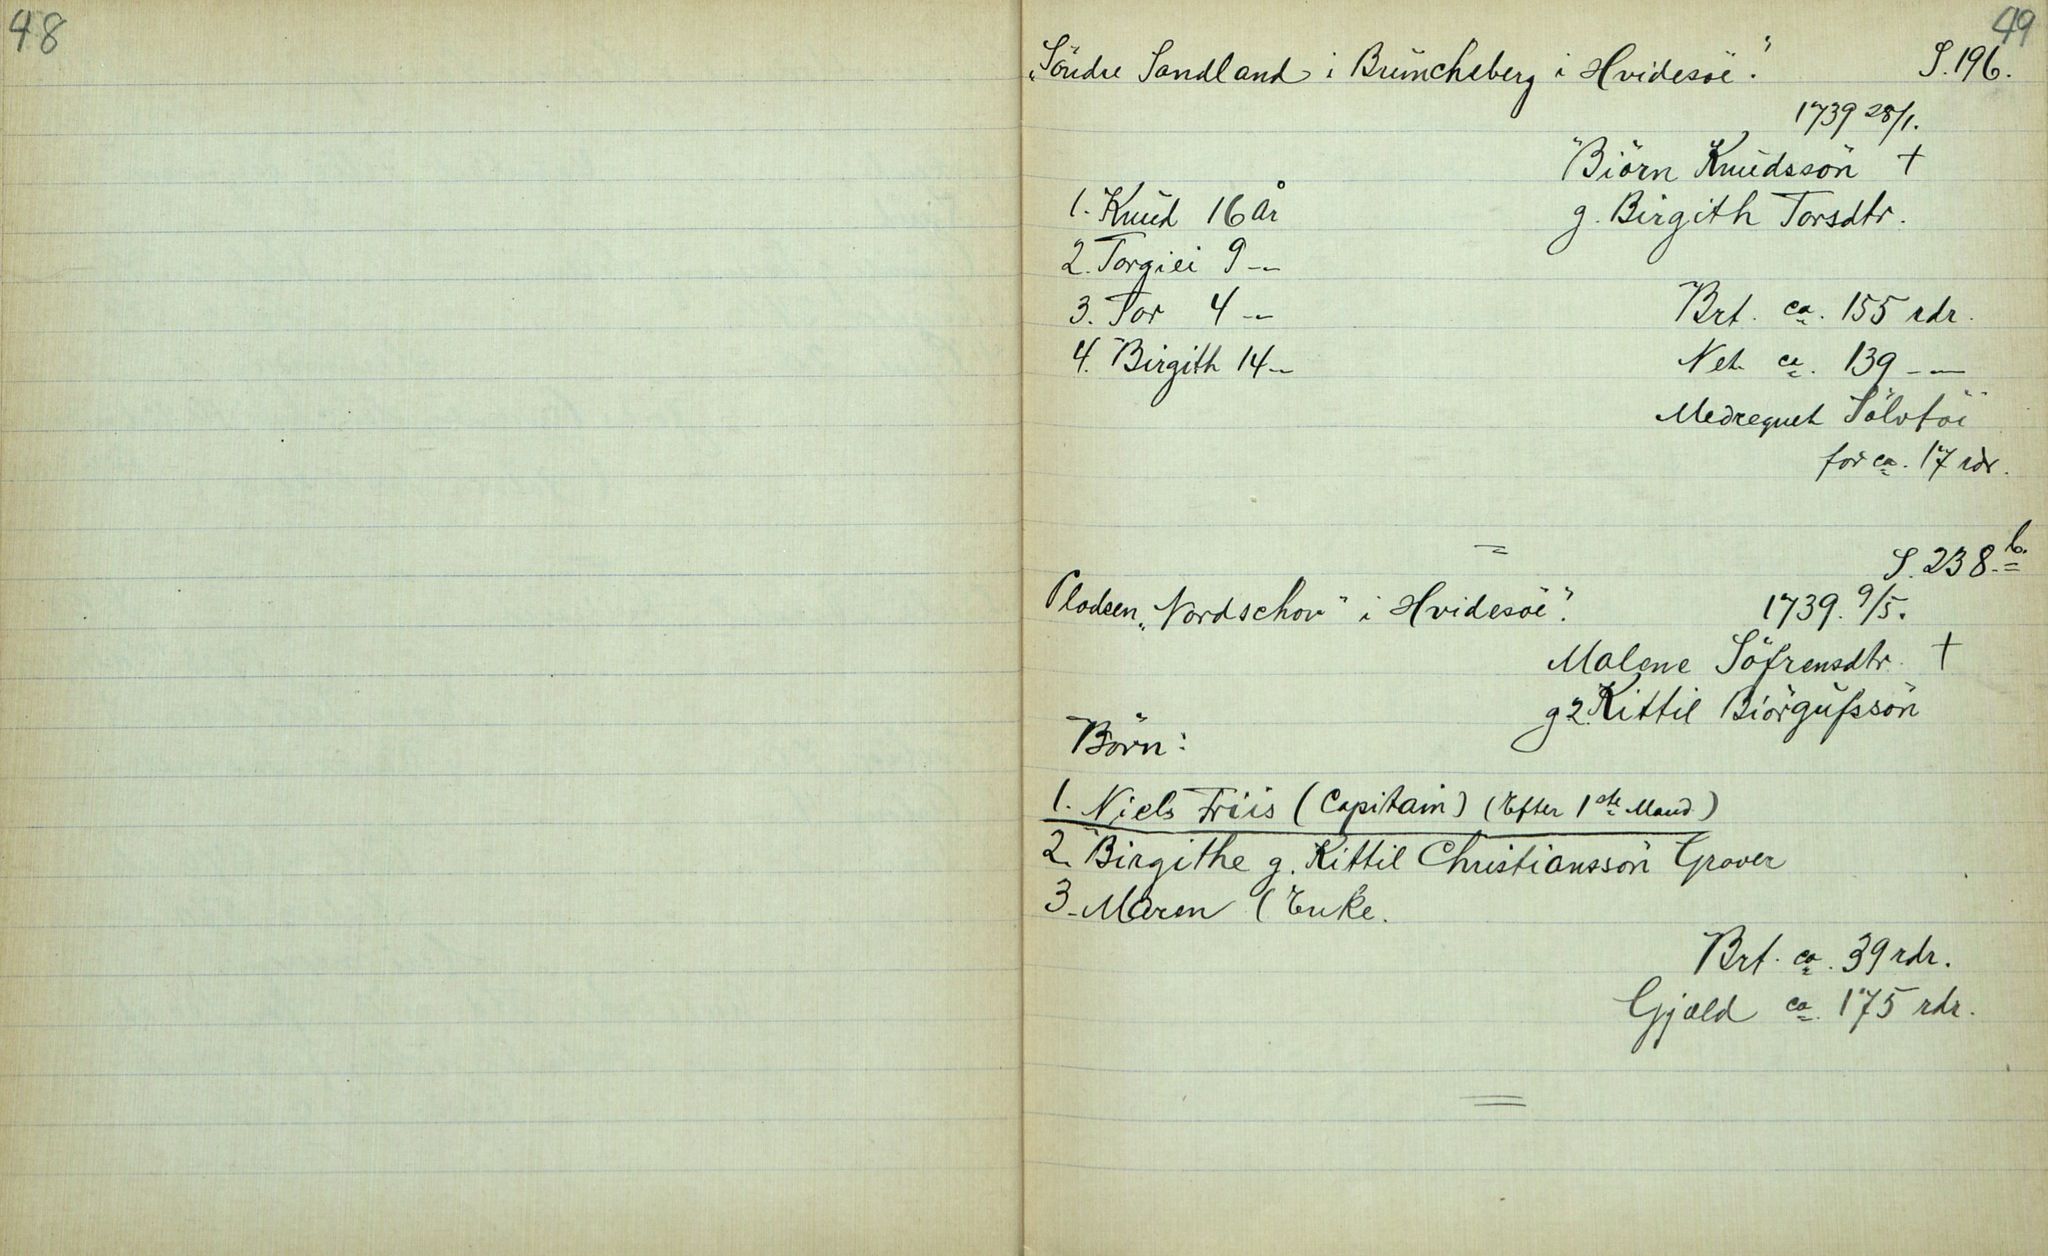 48
49
„Söndre Sandland i Brüncheberg i Hvidesöe". S. 196.
1739 28/1.
Biörn Knüdssön †
1. Knüd 16 år g. Birgith Torsdtr.
2. Torgiei 9 -„-
3. Tor 4 -„- Brt. ca. 155 rdr.
4. Birgith 14 -„- Net. ca. 139 -„-
Medregnet Sölvtöi
for ca. 17 rdr.
S. 238.b.
Pladsen „Nordschov" i Hvidesöe". 1739. 9/5.
Malene Söfrensdtr. †
g 2. Kittil Biörgüfssön
Börn:
1. Niels Friis (Capitain) (Efter 1ste Mand)
2. Birgithe g. Kittil Christianssön Graver
3. Maren (Enke.
Brt. ca. 39 rdr.
Gjæld ca. 175 rdr.